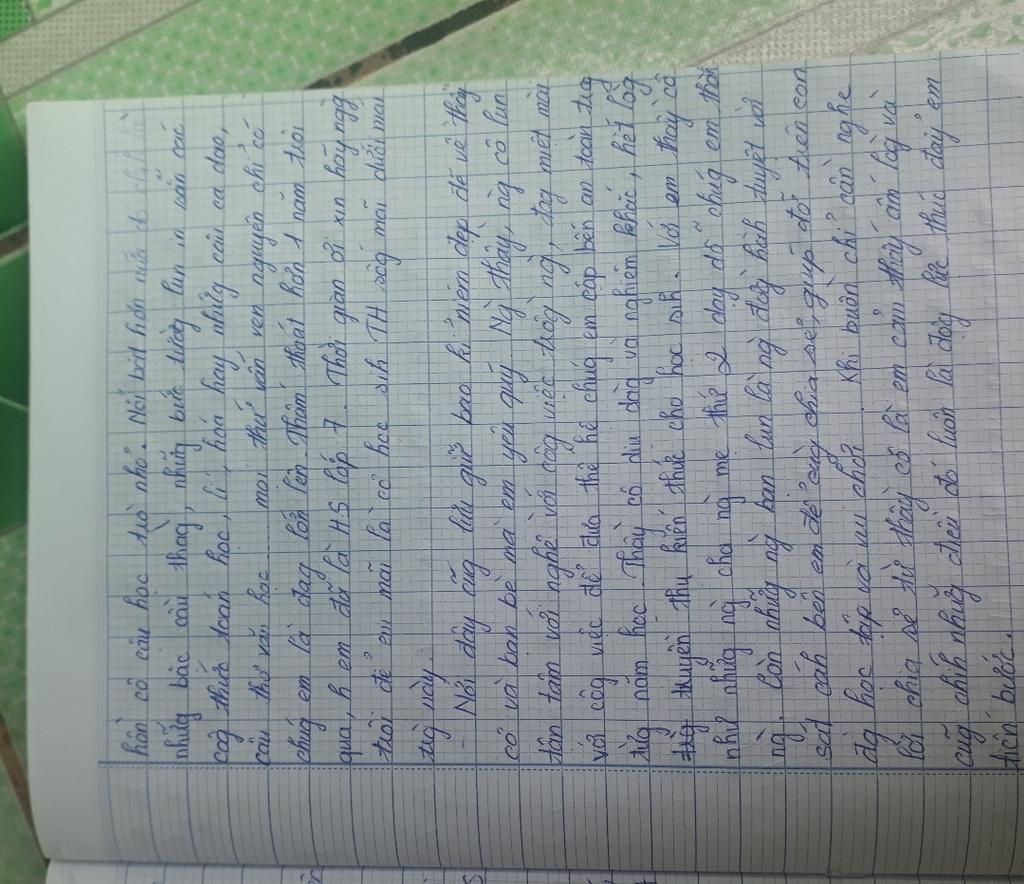 hồn cô cậu học trò nhỏ. Nổi bật hơn nữa
nhữg bậc cầu thag, nhữg bức tườg lun in sẵn các
côg thức toán học, lí, hoá hay nhửg câu ca dao,
câu thơ văn học......... mọi thứ vẫn vẹn nguyên chỉ có
chúg em là đag lớn lên. Thấm thoát hơn 1 năm trôi
qua, h em đã là HS lớp 7. Thời gian ơi xin hãy ngg
trôi để em mãi là cô học sih TH sốg mãi dưới mái
trg này.
- Nơi đây cũg lưu giữ bao kỉ niệm đẹp đẽ về thầy
cô và bạn bè mà em yêu quý. Ng thầy, ng cô lun
tận tâm với nghề với côg việc trồg ng, đag miệt mài
với côg việc để đưa thế hệ chúg em cập bến an toàn từg
từg năm học. Thầy cô dịu dàg và nghiêm khắc, hết lòg
truyền thụ kiến thức cho học sih. Với em thầy cô
như nhữg ng cha ng mẹ thứ 2 dạy dỗ chúg em thàh
ng. Còn nhữg ng bạn lun là ng đồg hàh tuyệt vời
sát cáh bên em để cùg chia sẻ, giúp đỡ trên con
đg học tập và vui chơi. Khi buồn chỉ cần nghe
lời chia sẻ từ thầy cô là em cảm thấy ấm lòg và
cũg chíh nhữg điều đó luôn là độg lực thúc đẩy em
tiến bước.